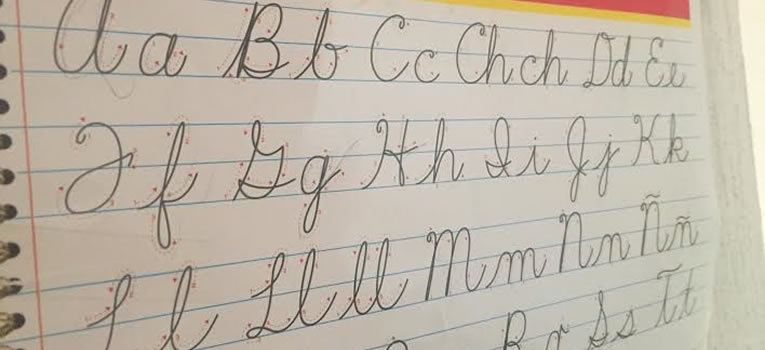 Aa Bb Cc Chch Dd Ee
Ff Gg Hh Ii Jj Kk
Ll Llll Mm Nn Ññ
Rr Ss Tt